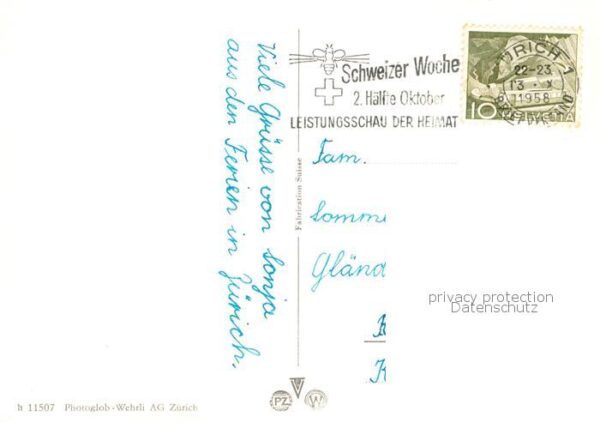 Viele Grüsse von Sonja
aus den Ferien in Zürich.
Schweizer Woche
2. Hälfte Oktober
LEISTUNGSSCHAU DER HEIMAT
ZÜRICH 1
22-23
1958
BRIEFVERSAND
10
HELVETIA
Fabrication Suisse
Fam.
Somme
Gländ
K
K
privacy protection
Datenschutz
h 11507 Photoglob-Wehrli AG Zürich
PZ
W